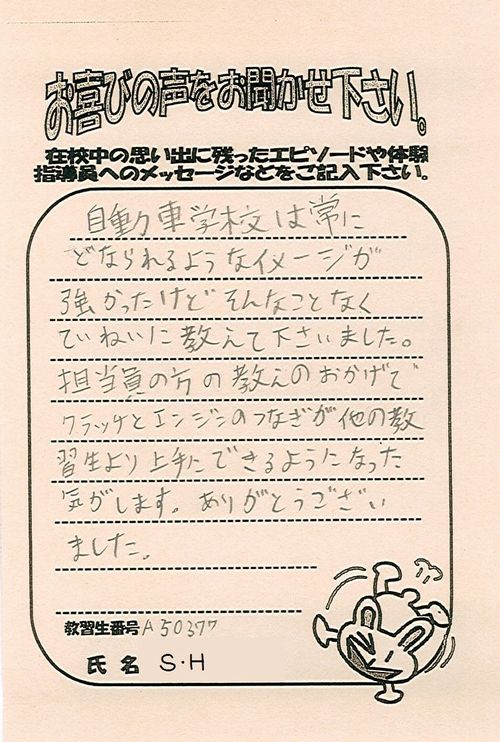 お喜びの声をお聞かせ下さい。
在校中の思い出に残ったエピソードや体験
指導員へのメッセージなどをご記入下さい。
自動車学校は常に
どなられるようなイメージが
強かったけど そんなことなく
ていねいに教えて下さいました。
担当員の方の教えのおかげで
クラッチとエンジンのつなぎが他の教
習生より上手にできるようになった
気がします。ありがとうござい
ました。
教習生番号 A50377
氏名 S・H